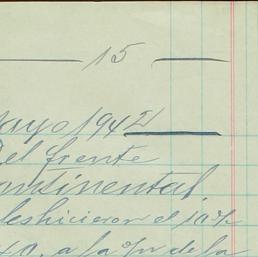 15
Mayo 1942
el frente
continental
deshicieron el
a la de la